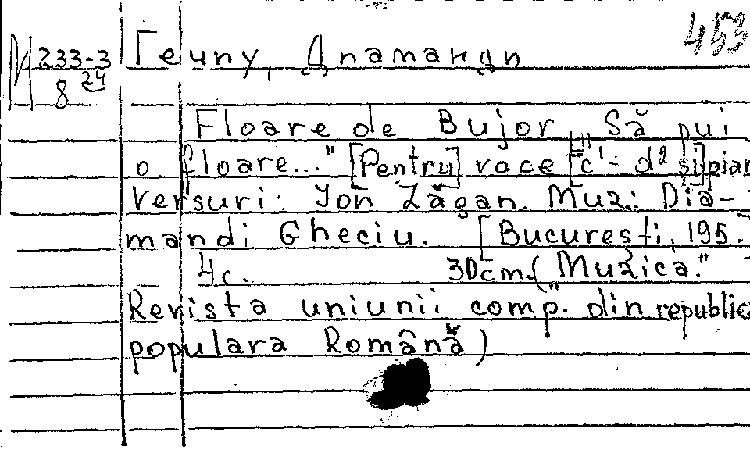 453
М 233-3 Гечиу, Диаманди
8 24
Floare de Bujor „Să pui
o floare..." [Pentru] voce [c¹- d² și] pian
Versuri: Ion Zăgan. Muz.: Dia-
mandi Gheciu. [București, 195.
4c. 30cm. („Muzica."
Revista uniunii comp. din republic
populara Română)